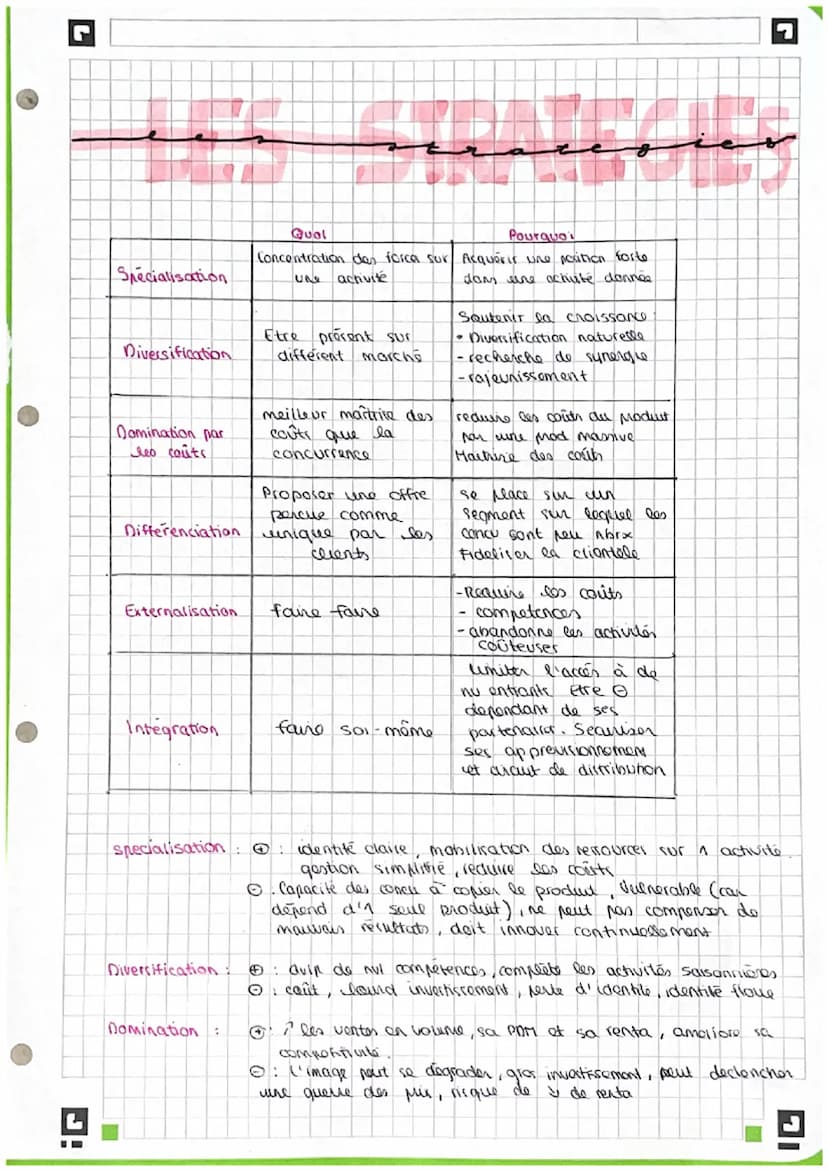 LES STRATEGIES
les strategies
Quoi Pourquoi
Spécialisation
Concentration des force sur
une activité
Acquérir une position forte
dans une activité donnée
Diversification
Etre présent sur
différent marché
Soutenir la croissance :
• Diversification naturelle
- recherche de synergie
- rajeunissement
Domination par
les coûts
meilleur maîtrise des
coûts que la
concurrence
reduire les coûts du produit
par une prod massive
Maitrise des coûts
Différenciation
Proposer une offre
percue comme
unique par les
clients
se place sur un
segment sur lequel les
concu sont peu nbrx
Fideliser la clientele
Externalisation
faire faire
- Reduire les coûts
- competences
- abandonne les activités
coûteuses
Intégration
faire soi-même
Limiter l'accés à de
nv entrants être ⊖
dependant de ses
partenaires. Securiser
ses approvisionnement
et circuit de distribution
specialisation : ⊕ : identité claire, mobilisation des ressources sur 1 activité.
gestion simplifié, reduire les coûts
⊖ . Capacité des concu à copier le produit, Vulnerable (car
dépend d'1 seul produit), ne peut pas compenser de
mauvais résultats, doit innover continuellement
Diversification : ⊕ : avir de nvl compétences, complète les activités saisonnières
⊖ : coût, lourd investissement, perte d'identite, identité floue
Domination : ⊕ : ↗ les ventes en volume, sa PDM et sa renta, ameliore sa
competitivité.
⊖ : L'image peut se dégrader, gros investissement, peut declencher
une guerre des prix, risque de ↘ de renta